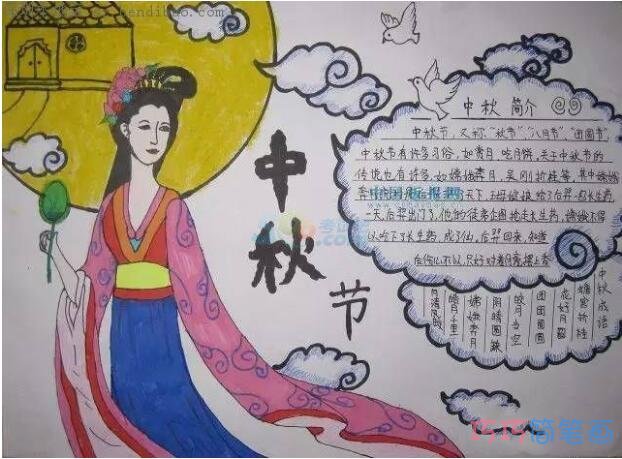 中
秋
节
中秋简介
中秋节,又称"秋节""八月节""团圆节",
中秋节有许多习俗,如赏月,吃月饼,关于中秋节的
传说也有许多,如嫦娥奔月,吴刚伐桂等,其中嫦娥
天下,王母娘娘给了后羿一包长生药
一天,后羿出门了,他的徒弟企图抢走长生药,嫦娥不得
以吞下了长生药,成了仙,后羿回来,知道
后伤心不以,只好对着月亮摆上香
中秋成语
蟾宫折桂
花好月圆
团团圆圆
皓月当空
阴晴圆缺
嫦娥奔月
皓月千里
简笔画